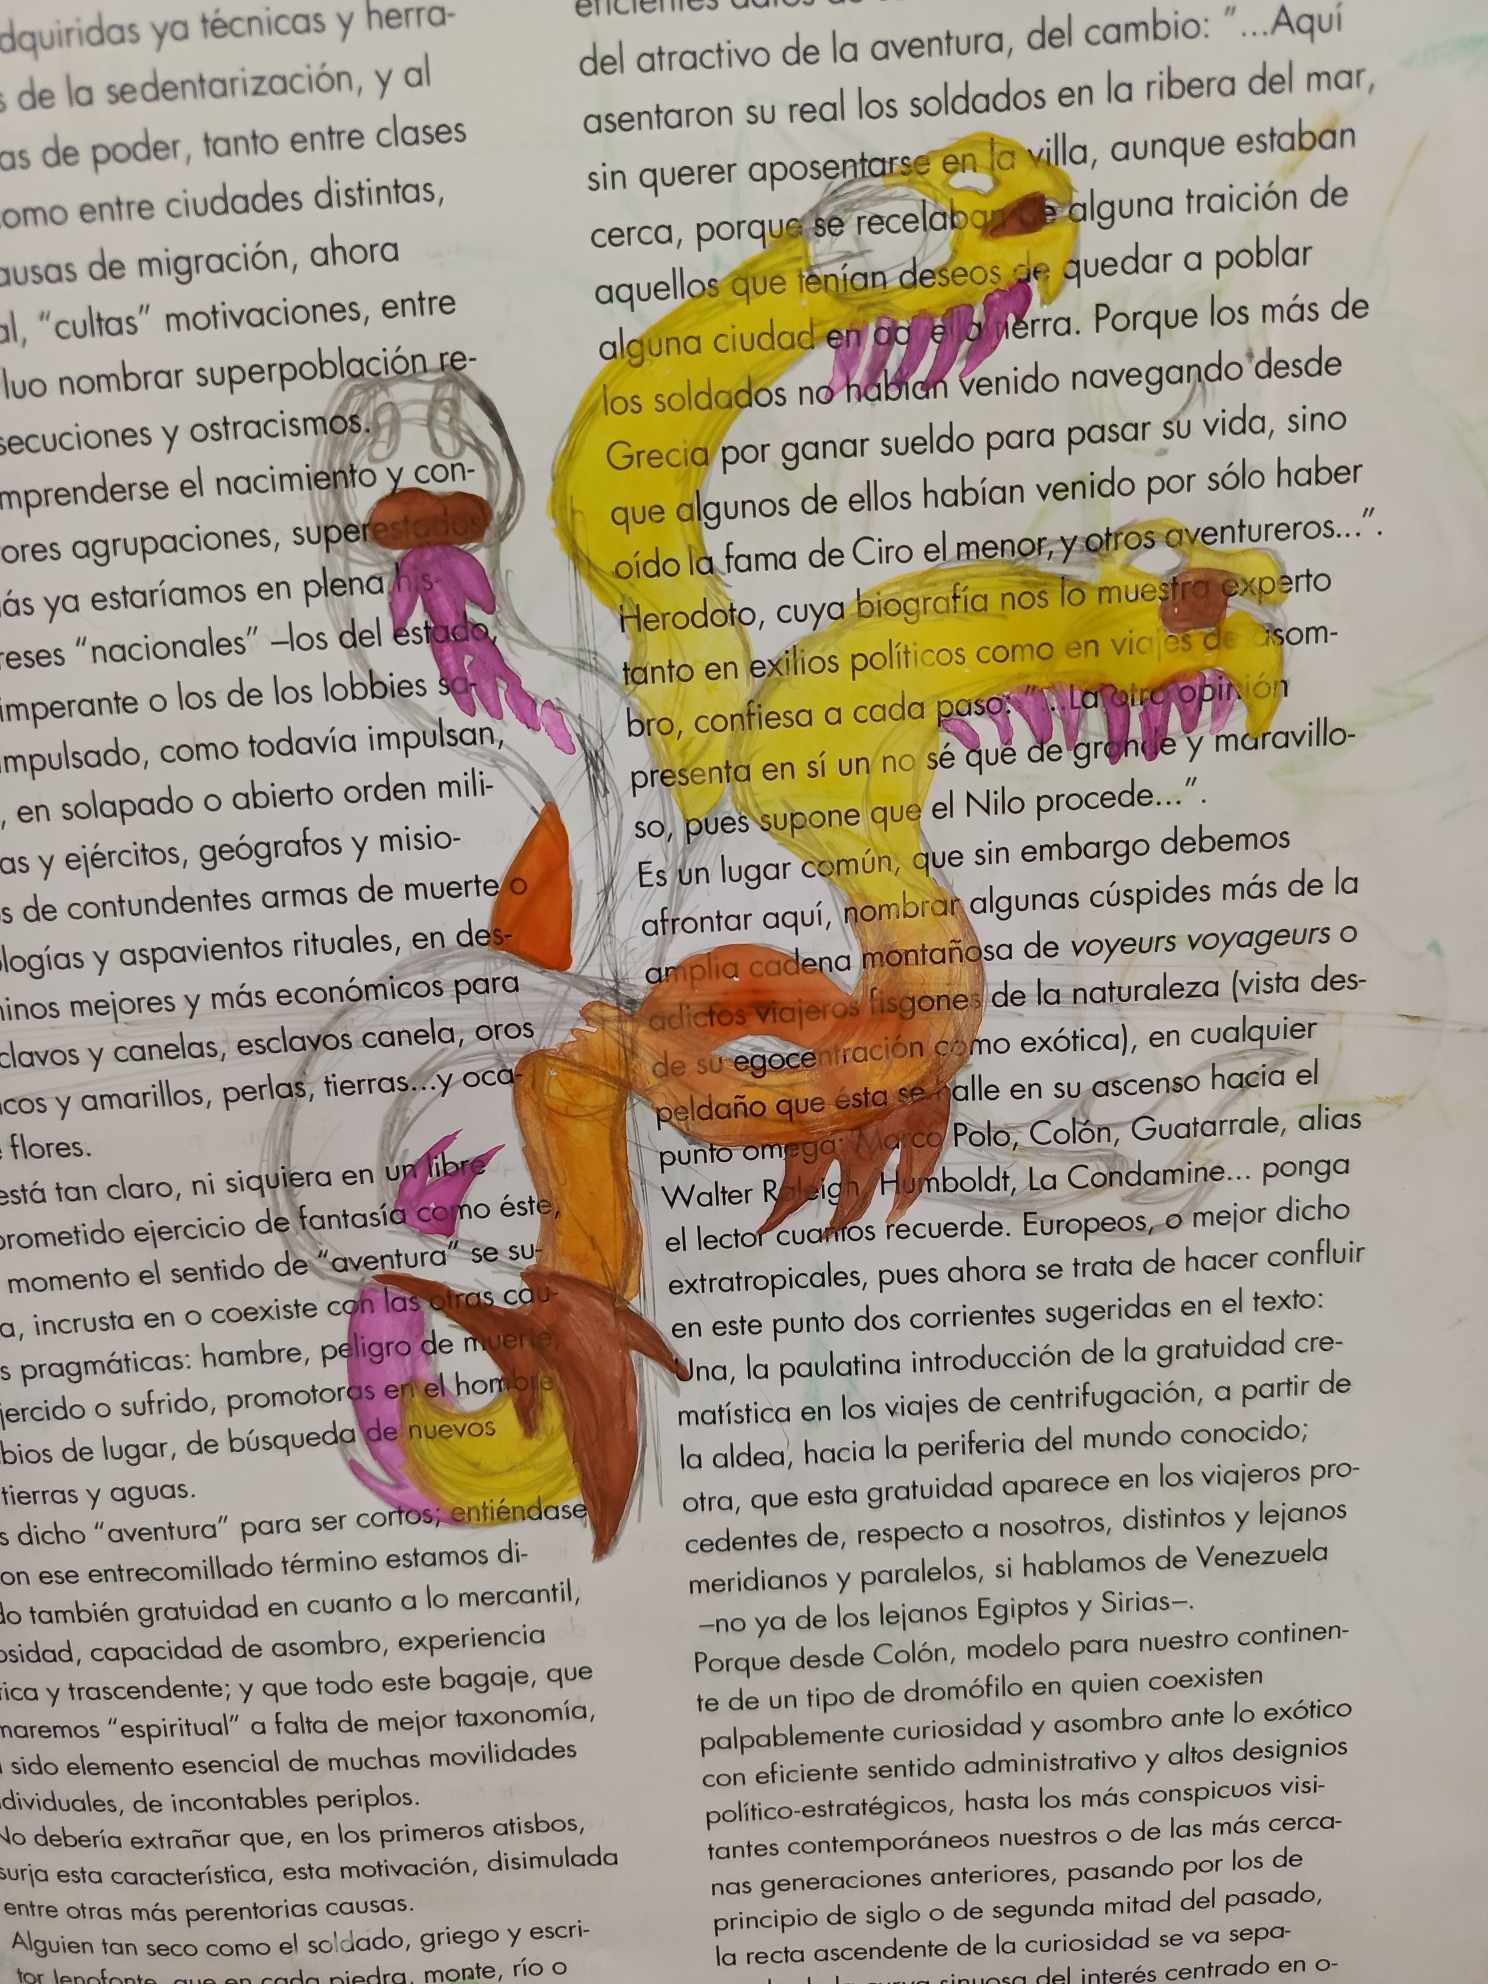 dquiridas ya técnicas y herra-
s de la sedentarización, y al
as de poder, tanto entre clases
omo entre ciudades distintas,
ausas de migración, ahora
al, “cultas” motivaciones, entre
luo nombrar superpoblación re-
secuciones y ostracismos.
mprenderse el nacimiento y con-
ores agrupaciones, superestados
ás ya estaríamos en plena his-
reses “nacionales” –los del estado,
imperante o los de los lobbies sa-
impulsado, como todavía impulsan,
, en solapado o abierto orden mili-
as y ejércitos, geógrafos y misio-
s de contundentes armas de muerte o
ologías y aspavientos rituales, en des-
ninos mejores y más económicos para
clavos y canelas, esclavos canela, oros
ncos y amarillos, perlas, tierras...y oca-
flores.
está tan claro, ni siquiera en un libre
prometido ejercicio de fantasía como éste,
momento el sentido de “aventura” se su-
a, incrusta en o coexiste con las otras cau-
s pragmáticas: hambre, peligro de muerte,
jercido o sufrido, promotoras en el hombre
bios de lugar, de búsqueda de nuevos
tierras y aguas.
s dicho “aventura” para ser cortos; entiéndase
on ese entrecomillado término estamos di-
do también gratuidad en cuanto a lo mercantil,
osidad, capacidad de asombro, experiencia
rica y trascendente; y que todo este bagaje, que
maremos “espiritual” a falta de mejor taxonomía,
sido elemento esencial de muchas movilidades
dividuales, de incontables periplos.
No debería extrañar que, en los primeros atisbos,
surja esta característica, esta motivación, disimulada
entre otras más perentorias causas.
Alguien tan seco como el soldado, griego y escri-
tor Jenofonte, que en cada piedra, monte, río o
del atractivo de la aventura, del cambio: “...Aquí
asentaron su real los soldados en la ribera del mar,
sin querer aposentarse en la villa, aunque estaban
cerca, porque se recelaban de alguna traición de
aquellos que tenían deseos de quedar a poblar
alguna ciudad en aquella tierra. Porque los más de
los soldados no habían venido navegando desde
Grecia por ganar sueldo para pasar su vida, sino
que algunos de ellos habían venido por sólo haber
oído la fama de Ciro el menor, y otros aventureros...”.
Herodoto, cuya biografía nos lo muestra experto
tanto en exilios políticos como en viajes de asom-
bro, confiesa a cada paso: “...La otra opinión
presenta en sí un no sé qué de grande y maravillo-
so, pues supone que el Nilo procede...”.
Es un lugar común, que sin embargo debemos
afrontar aquí, nombrar algunas cúspides más de la
amplia cadena montañosa de voyeurs voyageurs o
adictos viajeros fisgones de la naturaleza (vista des-
de su egocentración como exótica), en cualquier
peldaño que ésta se halle en su ascenso hacia el
punto omega: Marco Polo, Colón, Guatarrale, alias
Walter Raleigh, Humboldt, La Condamine... ponga
el lector cuantos recuerde. Europeos, o mejor dicho
extratropicales, pues ahora se trata de hacer confluir
en este punto dos corrientes sugeridas en el texto:
Una, la paulatina introducción de la gratuidad cre-
matística en los viajes de centrifugación, a partir de
la aldea, hacia la periferia del mundo conocido;
otra, que esta gratuidad aparece en los viajeros pro-
cedentes de, respecto a nosotros, distintos y lejanos
meridianos y paralelos, si hablamos de Venezuela
–no ya de los lejanos Egiptos y Sirias–.
Porque desde Colón, modelo para nuestro continen-
te de un tipo de dromófilo en quien coexisten
palpablemente curiosidad y asombro ante lo exótico
con eficiente sentido administrativo y altos designios
político-estratégicos, hasta los más conspicuos visi-
tantes contemporáneos nuestros o de las más cerca-
nas generaciones anteriores, pasando por los de
principio de siglo o de segunda mitad del pasado,
la recta ascendente de la curiosidad se va sepa-
sinuosa del interés centrado en o-